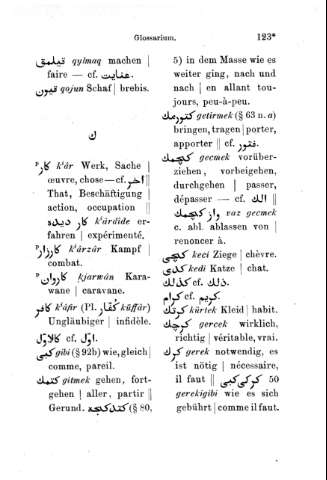 Glossarium. 123*
قيلمق qylmaq machen |
faire — cf. عنايت.
قيون qojun Schaf | brebis.
ك
P كار k'âr Werk, Sache |
œuvre, chose — cf. آخر ||
That, Beschäftigung |
action, occupation ||
كار ديده k'ârdide er-
fahren | expérimenté.
P كارزار k'ârzâr Kampf |
combat.
P كاروان kjarwân Kara-
wane | caravane.
كافر k'âfir (Pl. كفّار küffâr)
Ungläubiger | infidèle.
كالاوّل cf. اوّل.
كبى gibi (§ 92b) wie, gleich |
comme, pareil.
كتمك gitmek gehen, fort-
gehen | aller, partir ||
Gerund. كتدكجه (§ 80,
5) in dem Masse wie es
weiter ging, nach und
nach | en allant tou-
jours, peu-à-peu.
كتورمك getirmek (§ 63 n. a)
bringen, tragen | porter,
apporter || cf. فتور.
كچمك gecmek vorüber-
ziehen, vorbeigehen,
durchgehen | passer,
dépasser — cf. الك ||
واز كچمك vaz gecmek
c. abl. ablassen von |
renoncer à.
كچى keci Ziege | chèvre.
كدى kedi Katze | chat.
كذلك cf. ذلك.
كرام cf. كريم.
كرتك kürtek Kleid | habit.
كرچك gercek wirklich,
richtig | véritable, vrai.
كرك gerek notwendig, es
ist nötig | nécessaire,
il faut || كركى كبى 50
gerekigibi wie es sich
gebührt | comme il faut.